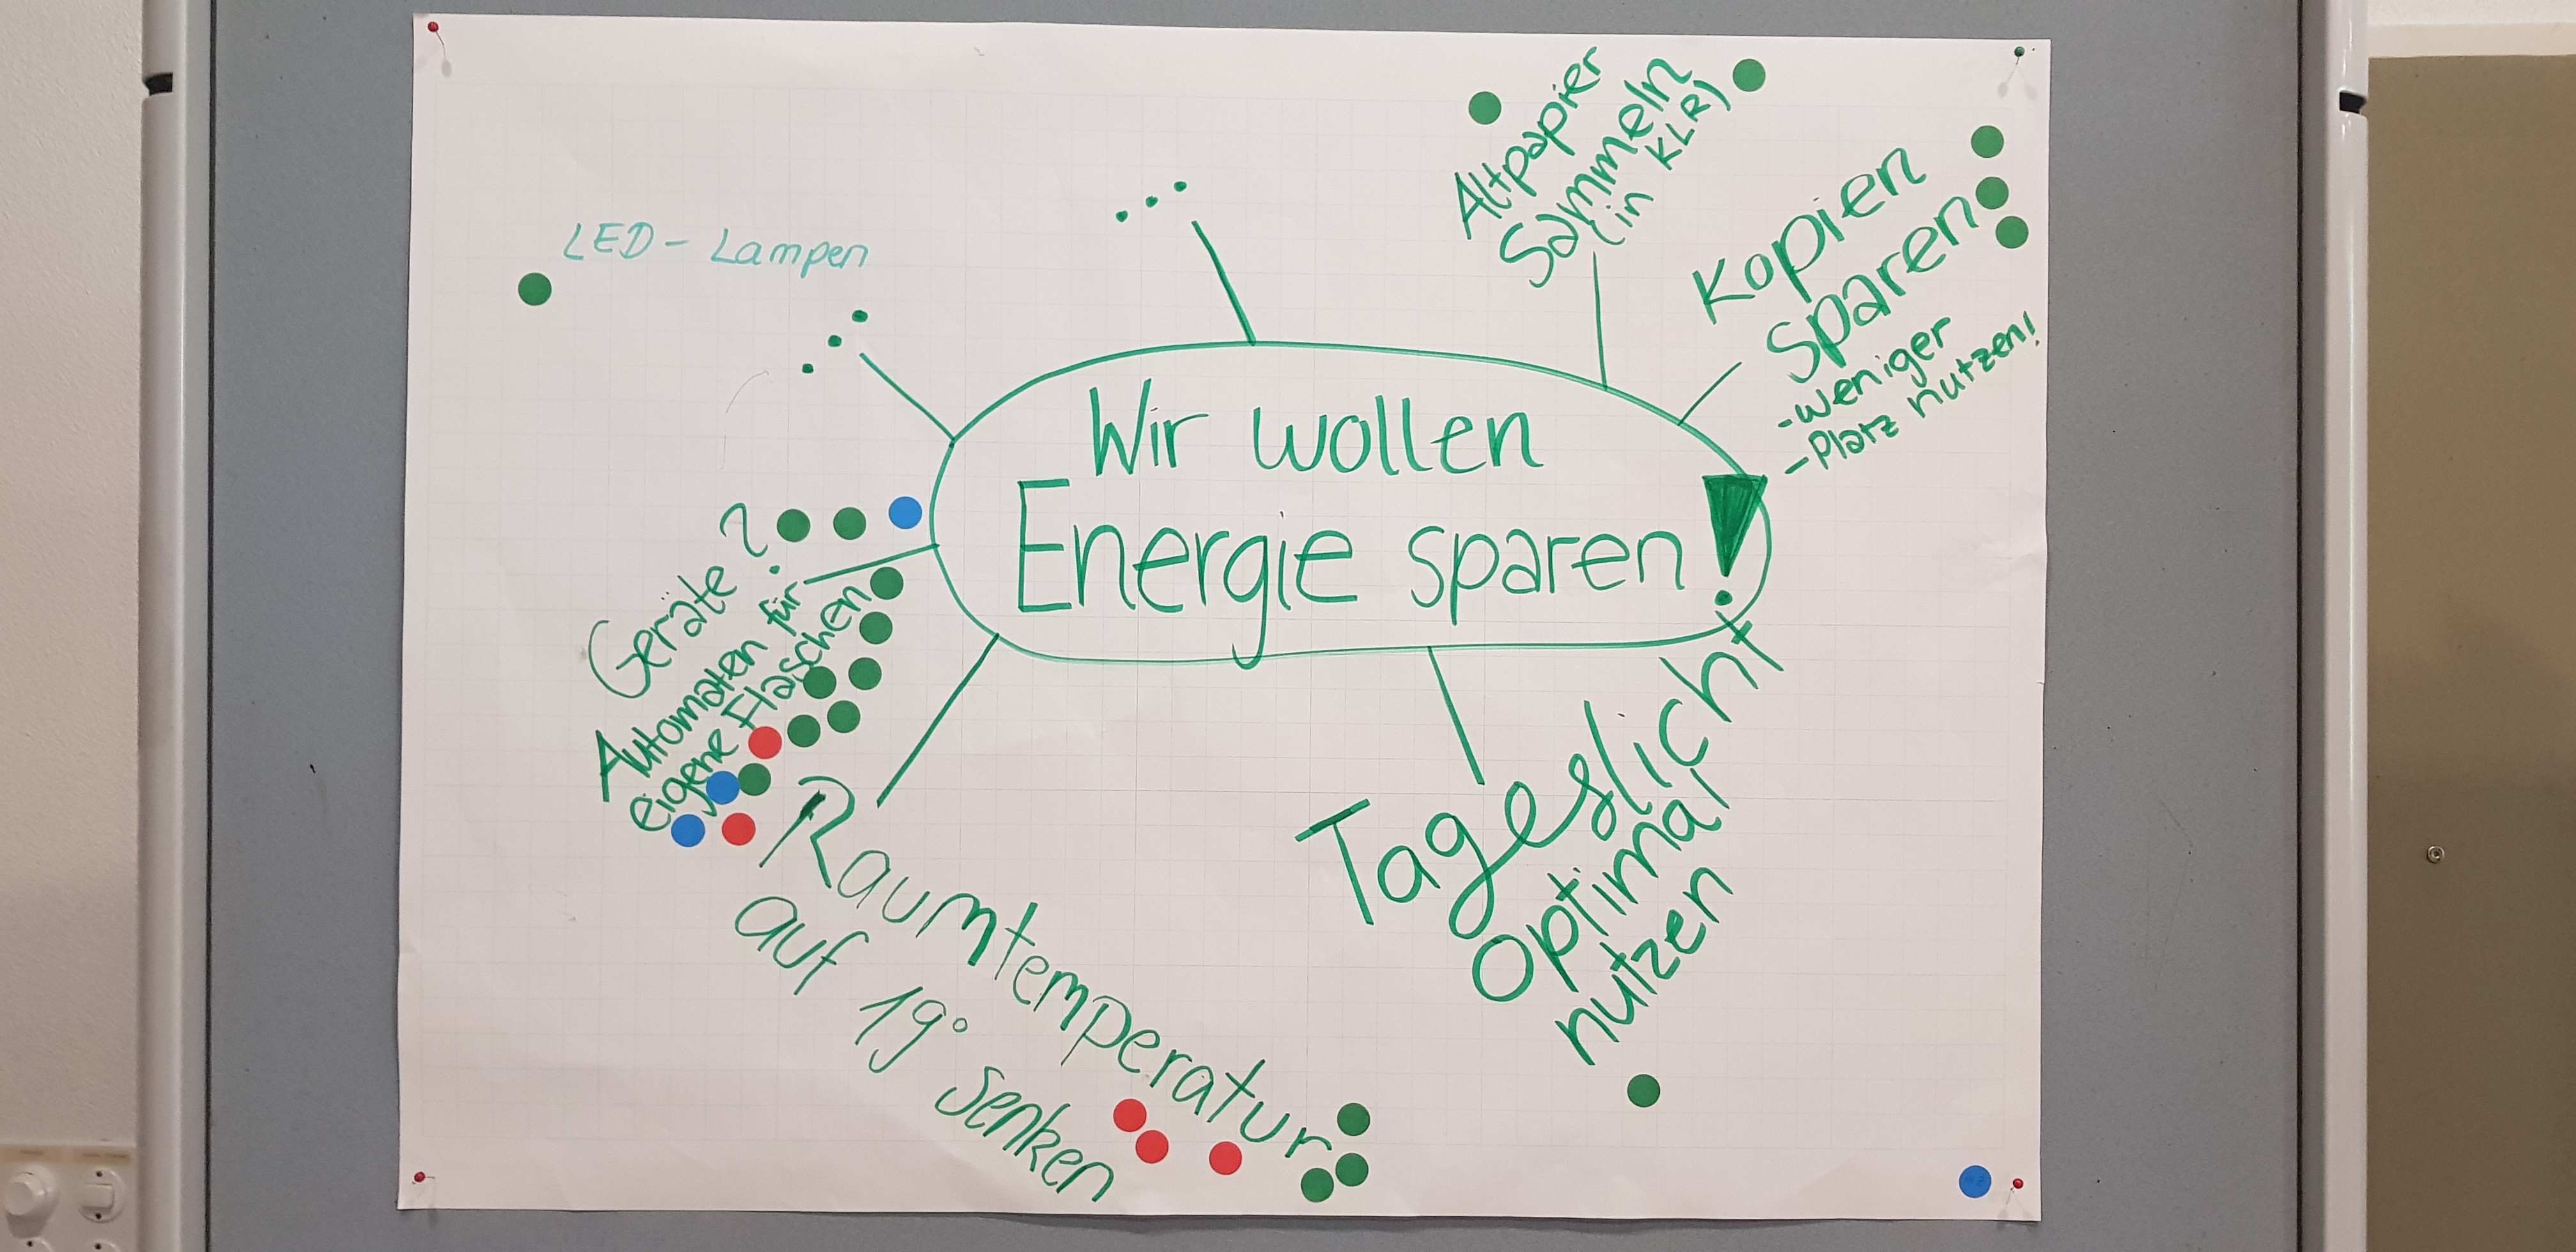 Altpapier
Sammeln
(in KLR)
Kopien
Sparen
-weniger
-Platz nutzen!
LED - Lampen
...
...
Wir wollen
Energie sparen!
Geräte?
Automaten für
eigene Flaschen
Raumtemperatur
auf 19° senken
Tageslicht
Optimal
nutzen